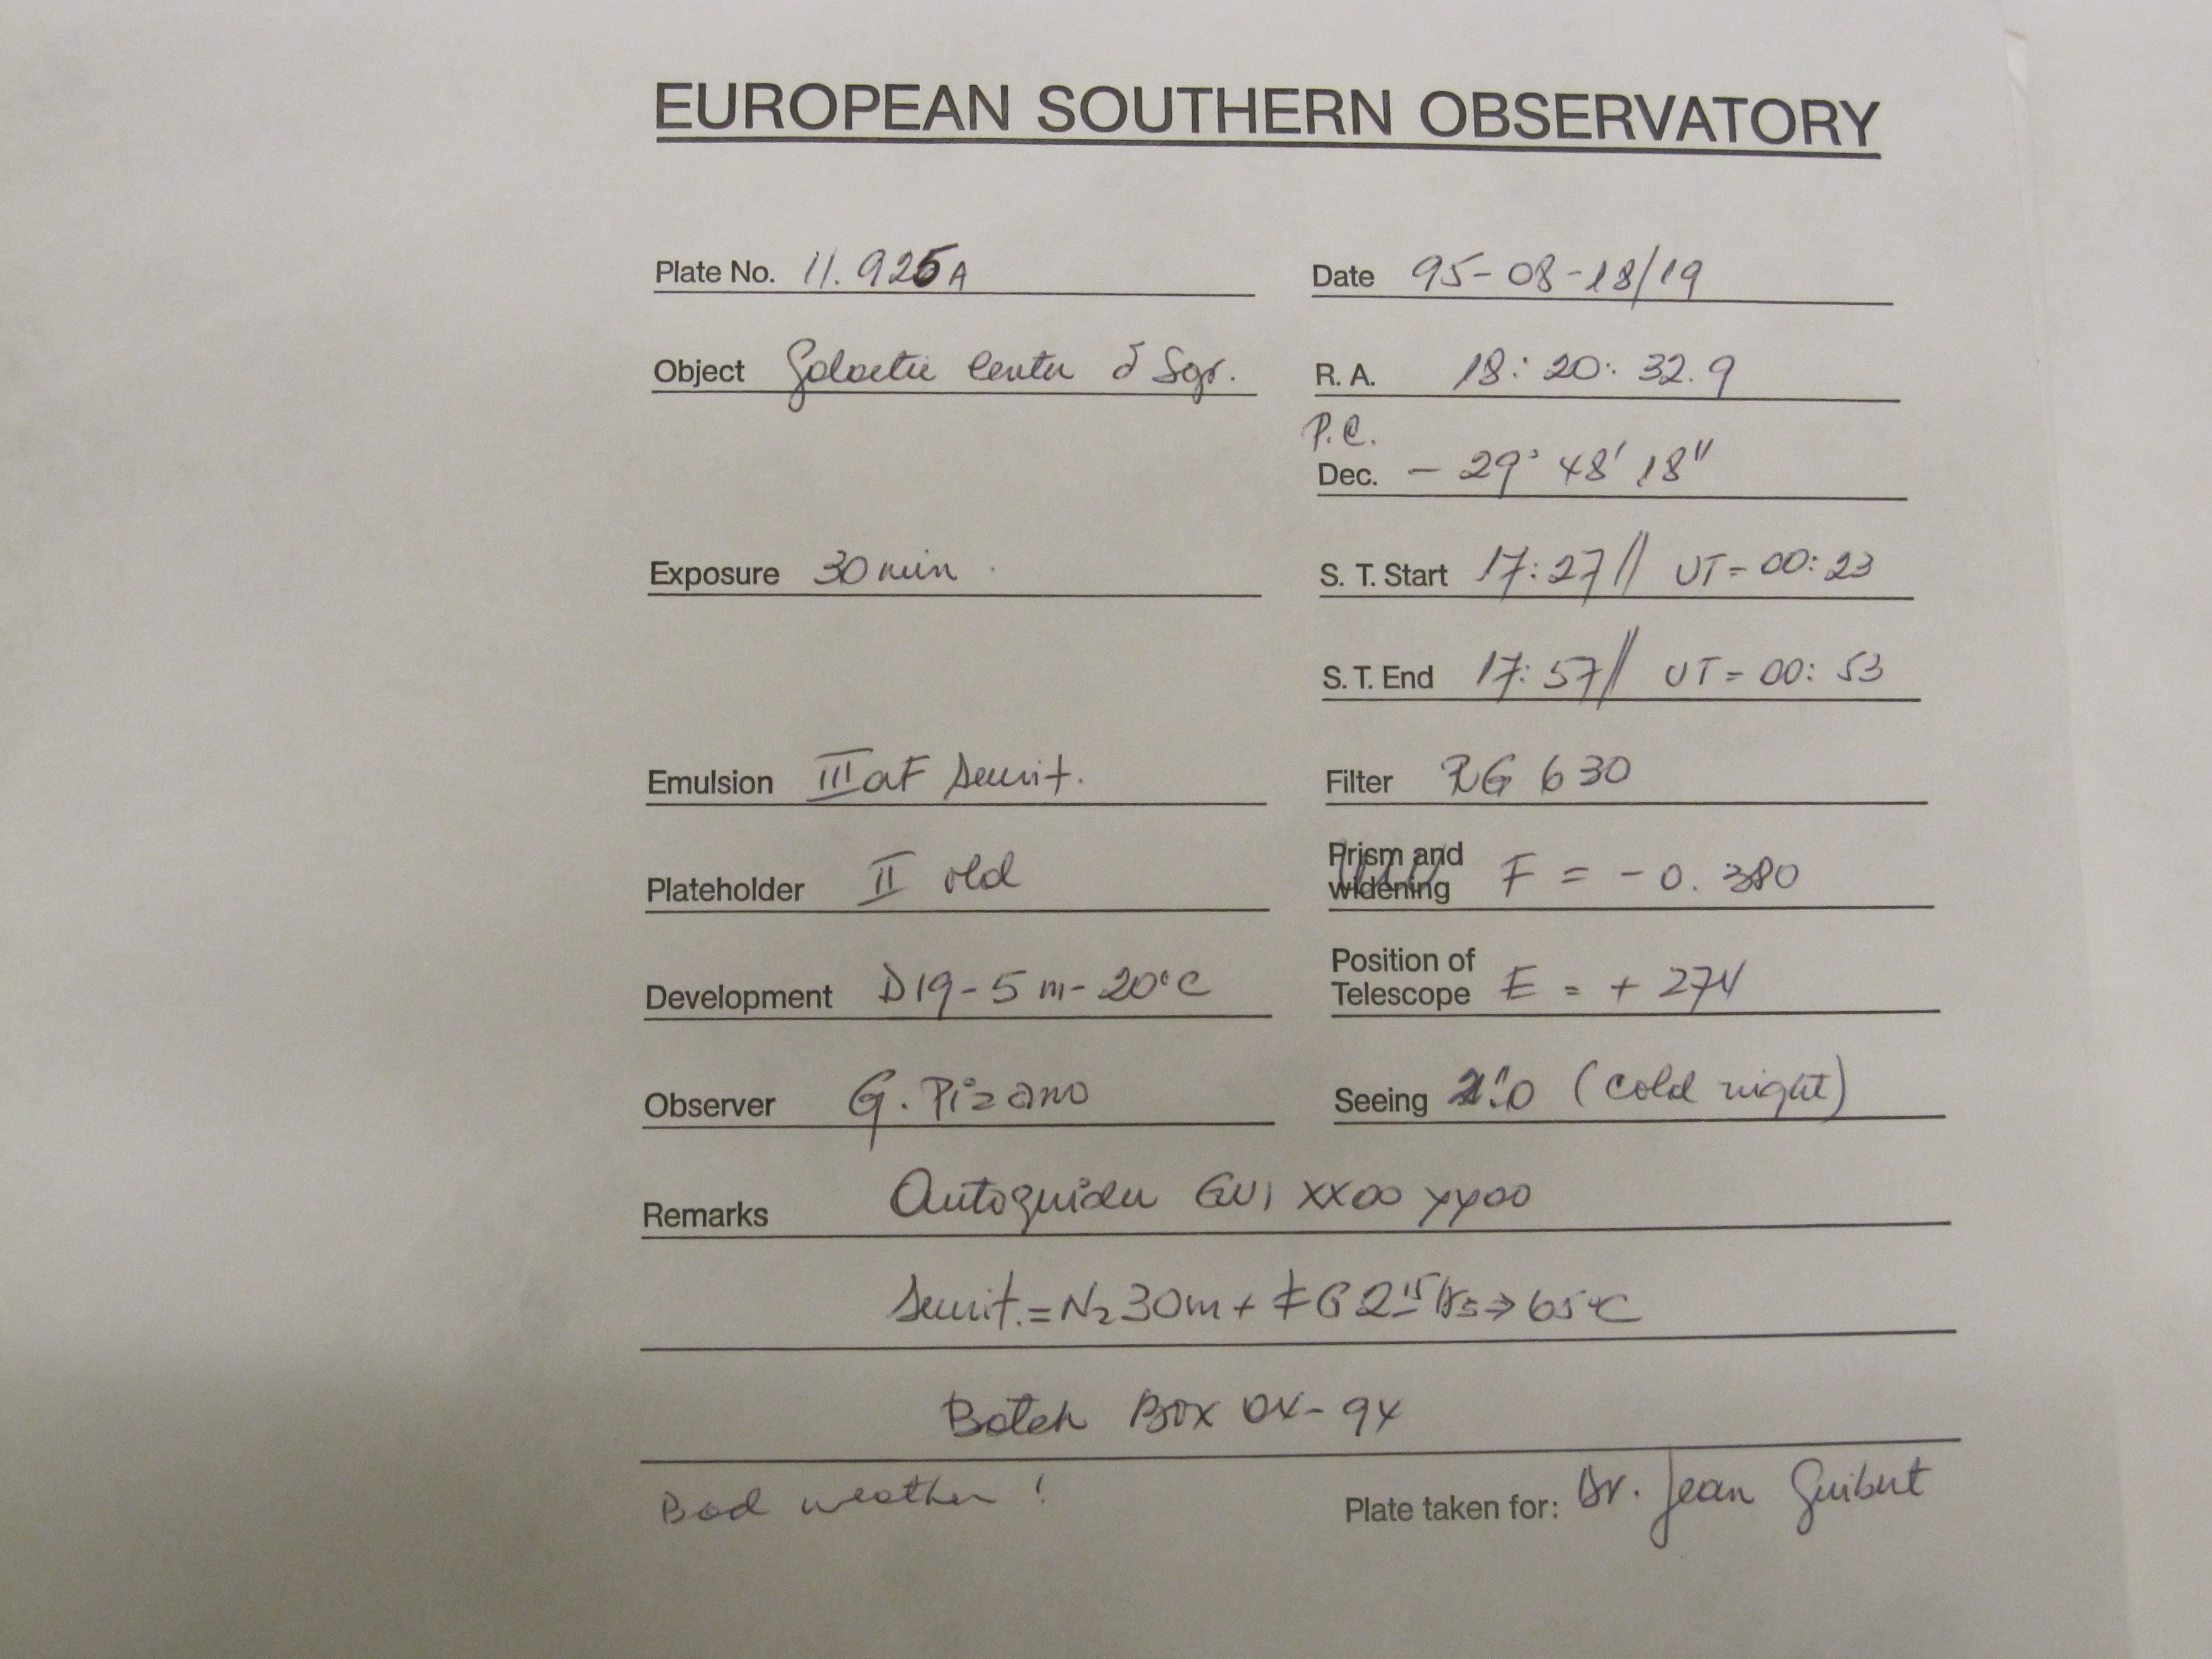 EUROPEAN SOUTHERN OBSERVATORY
Plate No. 11.925A Date 95-08-18/19
Object Galactic Center δ Sgr. R. A. 18: 20: 32.9
P.C.
Dec. - 29° 48' 18"
Exposure 30 min. S. T. Start 17:27// UT= 00:23
S. T. End 17:57// UT= 00: 53
Emulsion IIIaF Sensit. Filter RG 630
Plateholder II old Prism and widening F = -0. 380
Development D19-5m-20°C Position of Telescope E = + 274
Observer G. Pizarro Seeing (cold night)
Remarks Autoguider GU1 XX00 YY00
Sensit.=N2 30m+ FG 2 15 hrs⇒65°C
Batch Box 04-94
Bad weather ! Plate taken for: Dr. Jean Guibert